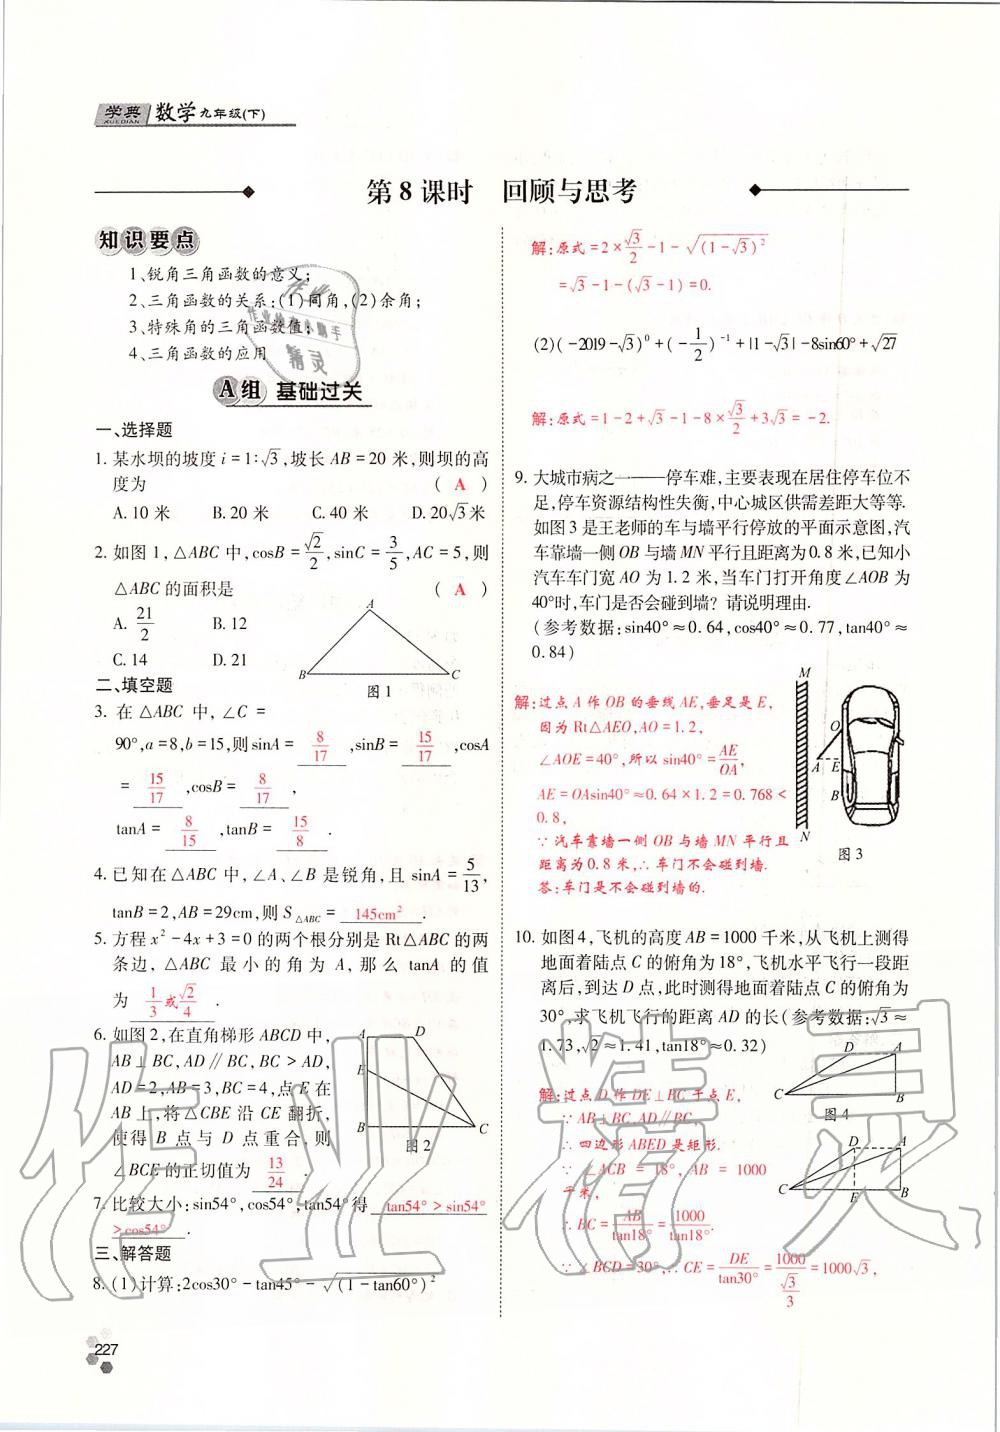 学典 数学 九年级(下)
XUEDIAN
第8课时 回顾与思考
知识要点
1、锐角三角函数的意义;
2、三角函数的关系:(1)同角,(2)余角;
3、特殊角的三角函数值;
4、三角函数的应用
A组 基础过关
一、选择题
1. 某水坝的坡度 i=1:√3,坡长 AB=20 米,则坝的高
度为 ( A )
A. 10 米 B. 20 米 C. 40 米 D. 20√3米
2. 如图 1,△ABC 中,cosB=√2/2,sinC=3/5,AC=5,则
△ABC 的面积是 ( A )
A. 21/2 B. 12
C. 14 D. 21
A
B
C
图 1
二、填空题
3. 在 △ABC 中, ∠C =
90°,a=8,b=15,则sinA= 8/17 ,sinB= 15/17 ,cosA
= 15/17 ,cosB= 8/17 ,
tanA= 8/15 ,tanB= 15/8 .
4. 已知在△ABC 中,∠A、∠B 是锐角,且 sinA=5/13,
tanB=2,AB=29cm,则 S△ABC= 145cm² .
5. 方程 x²-4x+3=0 的两个根分别是 Rt△ABC 的两
条边, △ABC 最小的角为 A, 那么 tanA 的值
为 1/3或√2/4 .
6. 如图 2,在直角梯形 ABCD 中,
AB⊥BC,AD∥BC,BC>AD,
AD=2,AB=3,BC=4,点 E 在
AB 上,将△CBE 沿 CE 翻折,
使得 B 点与 D 点重合,则
∠BCE 的正切值为 13/24 .
A
D
E
B
C
图 2
7. 比较大小:sin54°,cos54°,tan54°得 tan54°>sin54°
>cos54° .
三、解答题
8. (1)计算:2cos30°-tan45°-√(1-tan60°)²
227
解:原式=2×√3/2-1-√(1-√3)²
=√3-1-(√3-1)=0.
(2)(-2019-√3)⁰+(-1/2)⁻¹+|1-√3|-8sin60°+√27
解:原式=1-2+√3-1-8×√3/2+3√3=-2.
9. 大城市病之一——停车难,主要表现在居住停车位不
足,停车资源结构性失衡,中心城区供需差距大等等.
如图 3 是王老师的车与墙平行停放的平面示意图,汽
车靠墙一侧 OB 与墙 MN 平行且距离为 0.8 米,已知小
汽车车门宽 AO 为 1.2 米,当车门打开角度∠AOB 为
40°时,车门是否会碰到墙?请说明理由.
(参考数据:sin40°≈0.64,cos40°≈0.77,tan40°≈
0.84)
解:过点 A 作 OB 的垂线 AE,垂足是 E,
因为 Rt△AEO,AO=1.2,
∠AOE=40°,所以 sin40°=AE/OA,
AE=OAsin40°≈0.64×1.2=0.768<
0.8,
∵ 汽车靠墙一侧 OB 与墙 MN 平行且
距离为 0.8 米,∴ 车门不会碰到墙.
答:车门是不会碰到墙的.
M
O
A E
B
N
图 3
10. 如图 4,飞机的高度 AB=1000 千米,从飞机上测得
地面着陆点 C 的俯角为 18°,飞机水平飞行一段距
离后,到达 D 点,此时测得地面着陆点 C 的俯角为
30°.求飞机飞行的距离 AD 的长(参考数据:√3≈
1.73,√2≈1.41,tan18°≈0.32)
D A
C B
图 4
解:过点 D 作 DE⊥BC 于点 E,
∵ AB⊥BC,AD∥BC,
∴ 四边形 ABED 是矩形.
∵ ∠ACB = 18°, AB = 1000
千米,
∴ BC=AB/tan18°=1000/tan18°.
∵ ∠BCD=30°,∴ CE=DE/tan30°=1000/(√3/3)=1000√3,
D A
C E B
作业精灵
作业
作业检查小助手
精灵